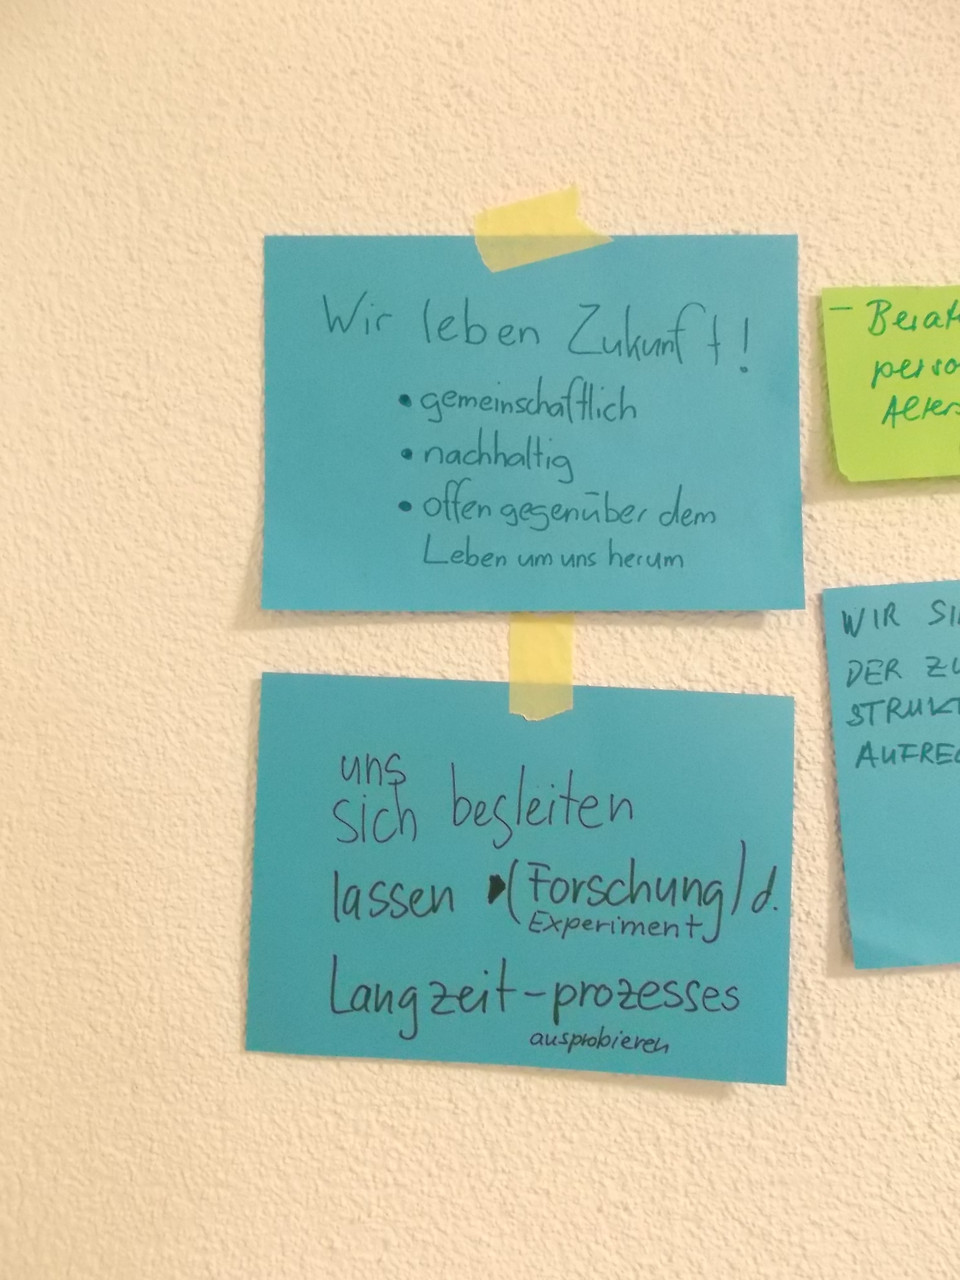 Wir leben Zukunft!
• gemeinschaftlich
• nachhaltig
• offen gegenüber dem
Leben um uns herum
uns
sich begleiten
lassen (Forschung) d.
Experiment
Langzeit-prozesses
ausprobieren
– Berat
perso
Alters
WIR SI
DER ZU
STRUKT
AUFREC